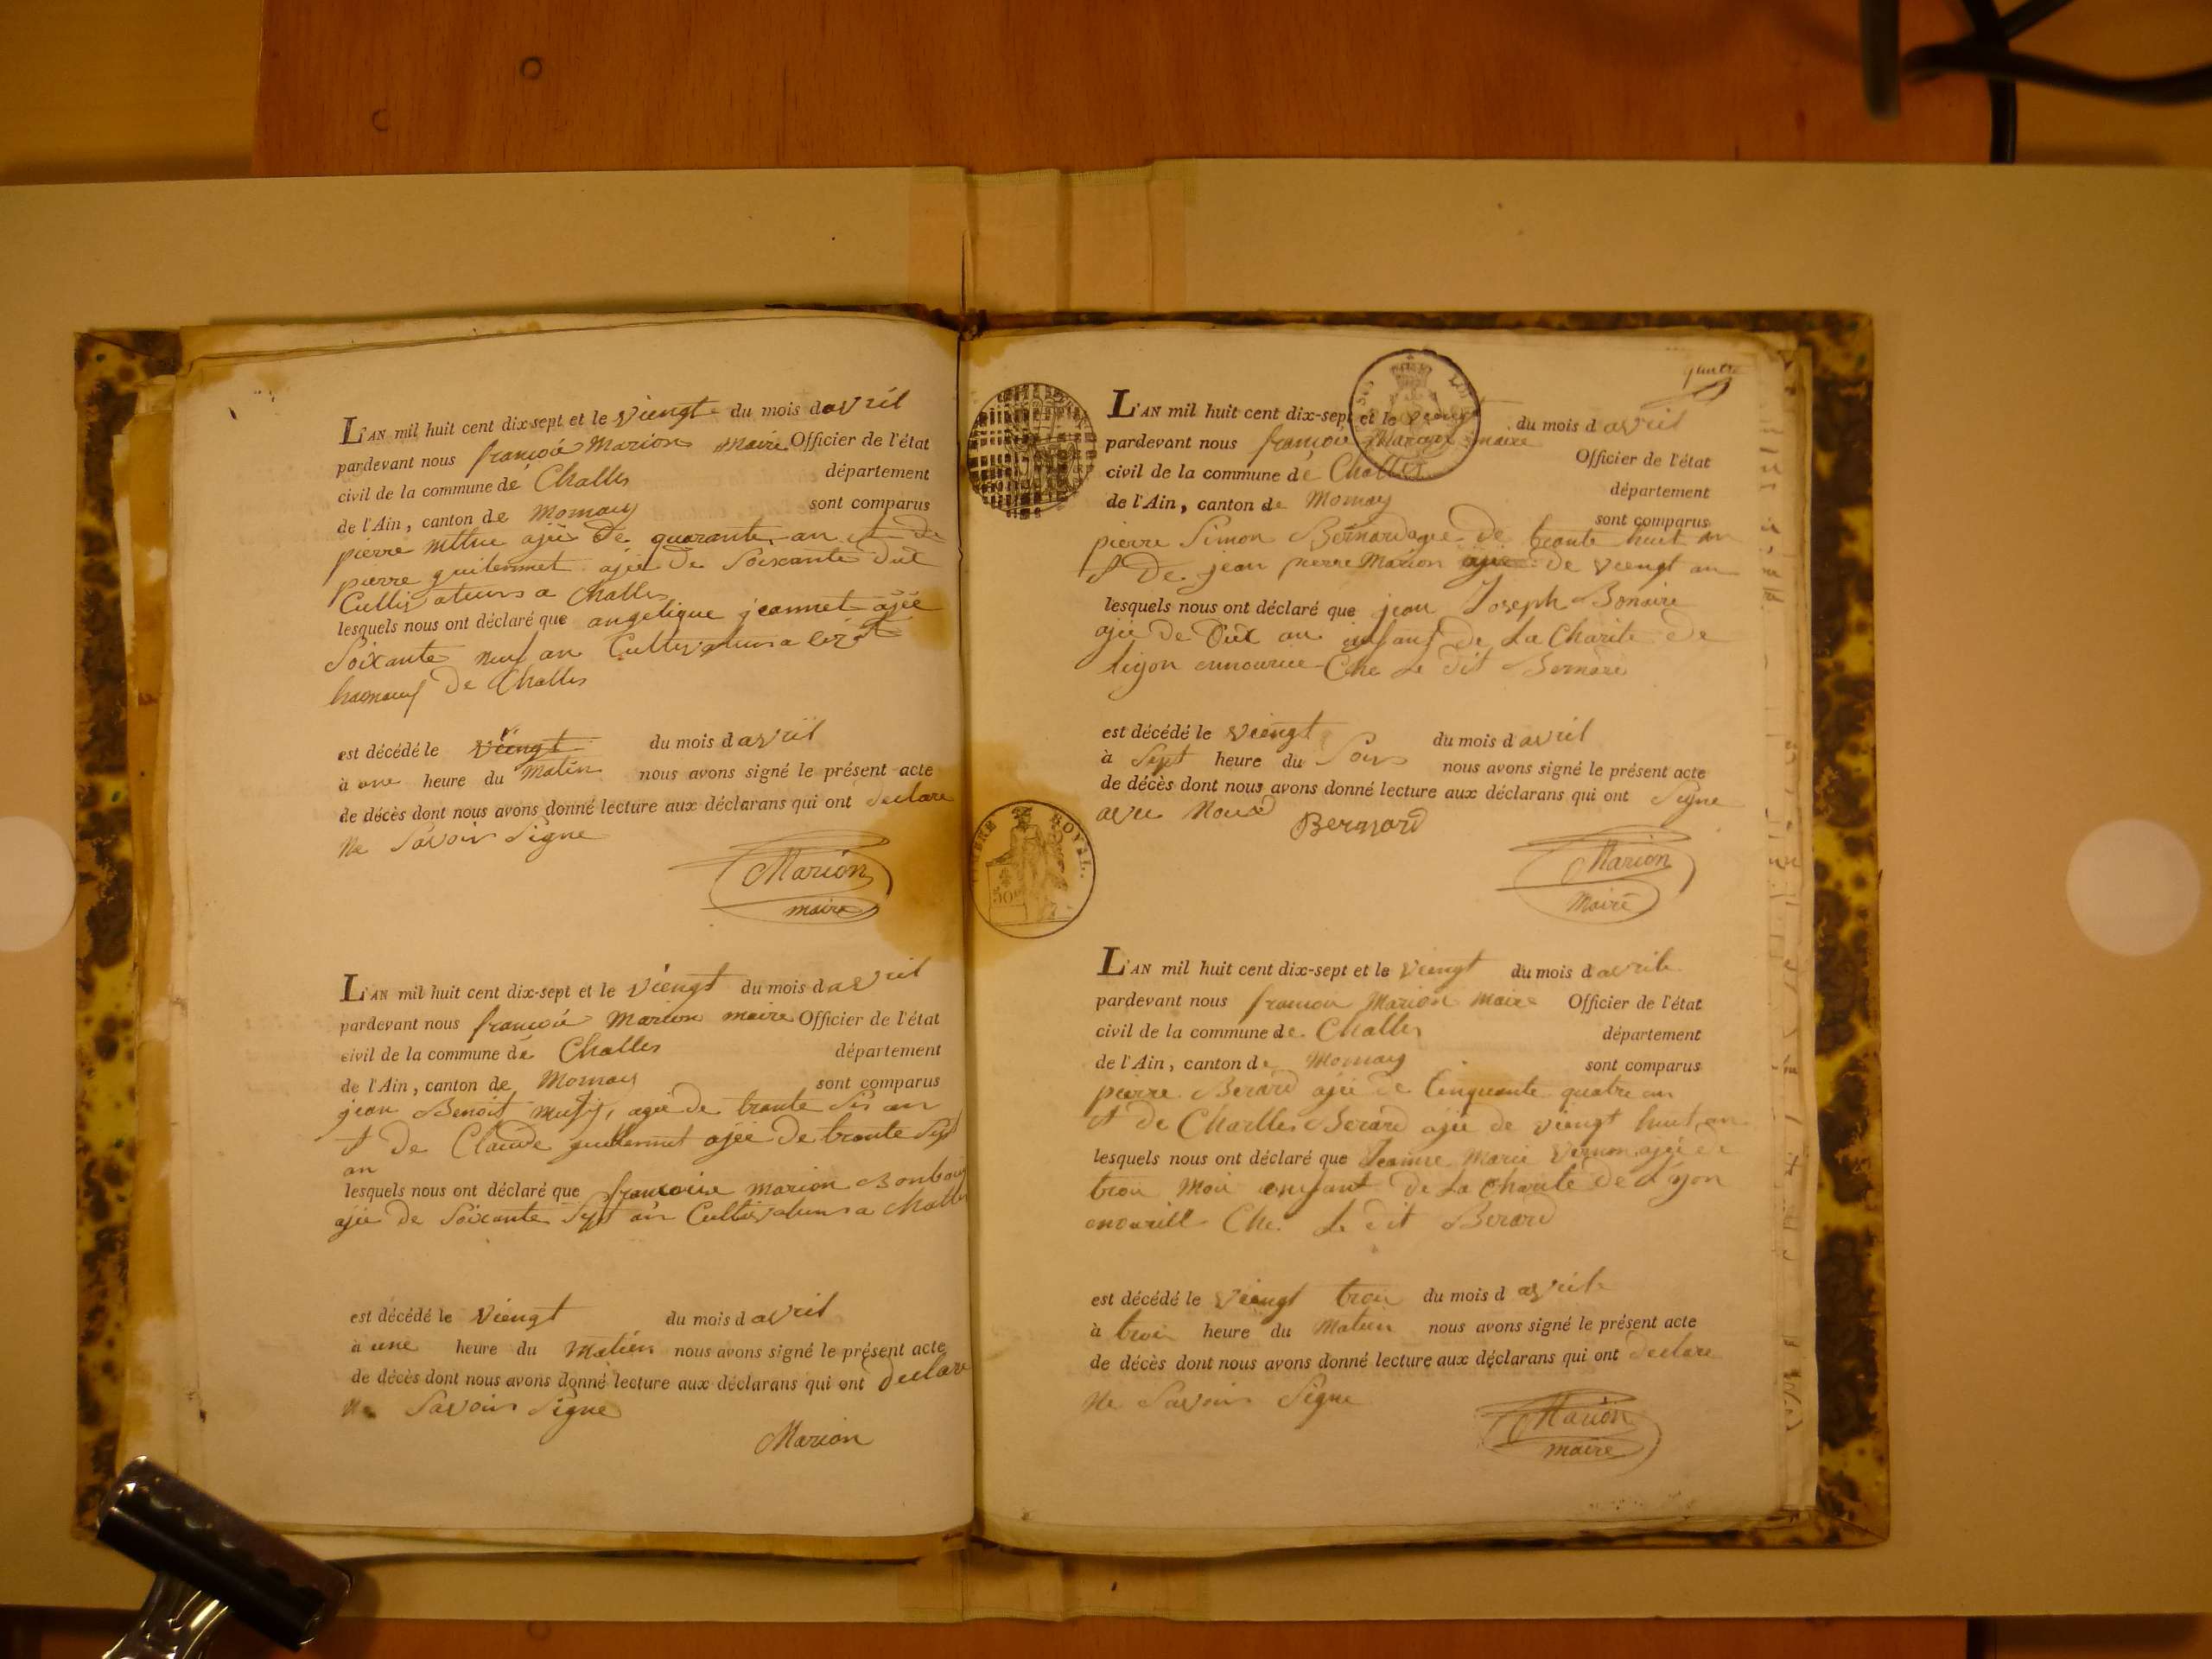 L'AN mil huit cent dix-sept et le viengt du mois d avril
pardevant nous françois Marion maire Officier de l'état
civil de la commune de Challes département
de l'Ain, canton de Mornay sont comparus
pierre ajée de quarante an et de
pierre guilermet ajée De Soixante
Cultivateurs a Challes
lesquels nous ont déclaré que angelique jeannet ajée
Soixante neuf an Cultivateurs a
hameauf De Challes
est décédé le viengt du mois d avril
à une heure du Matin nous avons signé le présent acte
de décès dont nous avons donné lecture aux déclarans qui ont declare
Ne Savoir Signe
Marion
maire
L'AN mil huit cent dix-sept et le viengt du mois d avril
pardevant nous françois Marion maire Officier de l'état
civil de la commune de Challes département
de l'Ain, canton de Mornay sont comparus
jean Benoit agée de trante Sis an
et De Claude guillermet ajée De trante Sept
an
lesquels nous ont déclaré que françoise Marion
ajée de Soixante Sept an Cultivateurs a Challes
est décédé le viengt du mois d avril
à une heure du Matien nous avons signé le présent acte
de décès dont nous avons donné lecture aux déclarans qui ont declare
Ne Savoir Signe
Marion
TIMBRE ROYAL.
50
L'AN mil huit cent dix-sept et le viengt du mois d avril
pardevant nous françois Marion maire Officier de l'état
civil de la commune de Challes département
de l'Ain, canton de Mornay sont comparus
pierre Simon Bernard agée de trante huit an
et De jean pierre Marion ajée De viengt an
lesquels nous ont déclaré que jean Joseph Bonaire
ajée De Dix an enfant De La Charite De
ligon ennourice Che Le Dit Bernard
est décédé le viengt du mois d avril
à Sept heure du Soir nous avons signé le présent acte
de décès dont nous avons donné lecture aux déclarans qui ont Signe
avec Nous Bernard
Marion
Maire
L'AN mil huit cent dix-sept et le viengt du mois d avrile
pardevant nous françois Marion maire Officier de l'état
civil de la commune de Challes département
de l'Ain, canton de Mornay sont comparus
pierre Berard ajée de Cinquante quatre an
et de Charlles Berard ajée de viengt huit an
lesquels nous ont déclaré que Jeanne Marie ajée de
trois Mois enfant De La Charite De Lyon
Che Le Dit Berard
est décédé le viengt trois du mois d avrile
à trois heure du Matien nous avons signé le présent acte
de décès dont nous avons donné lecture aux déclarans qui ont declare
Ne Savoir Signe
Marion
maire